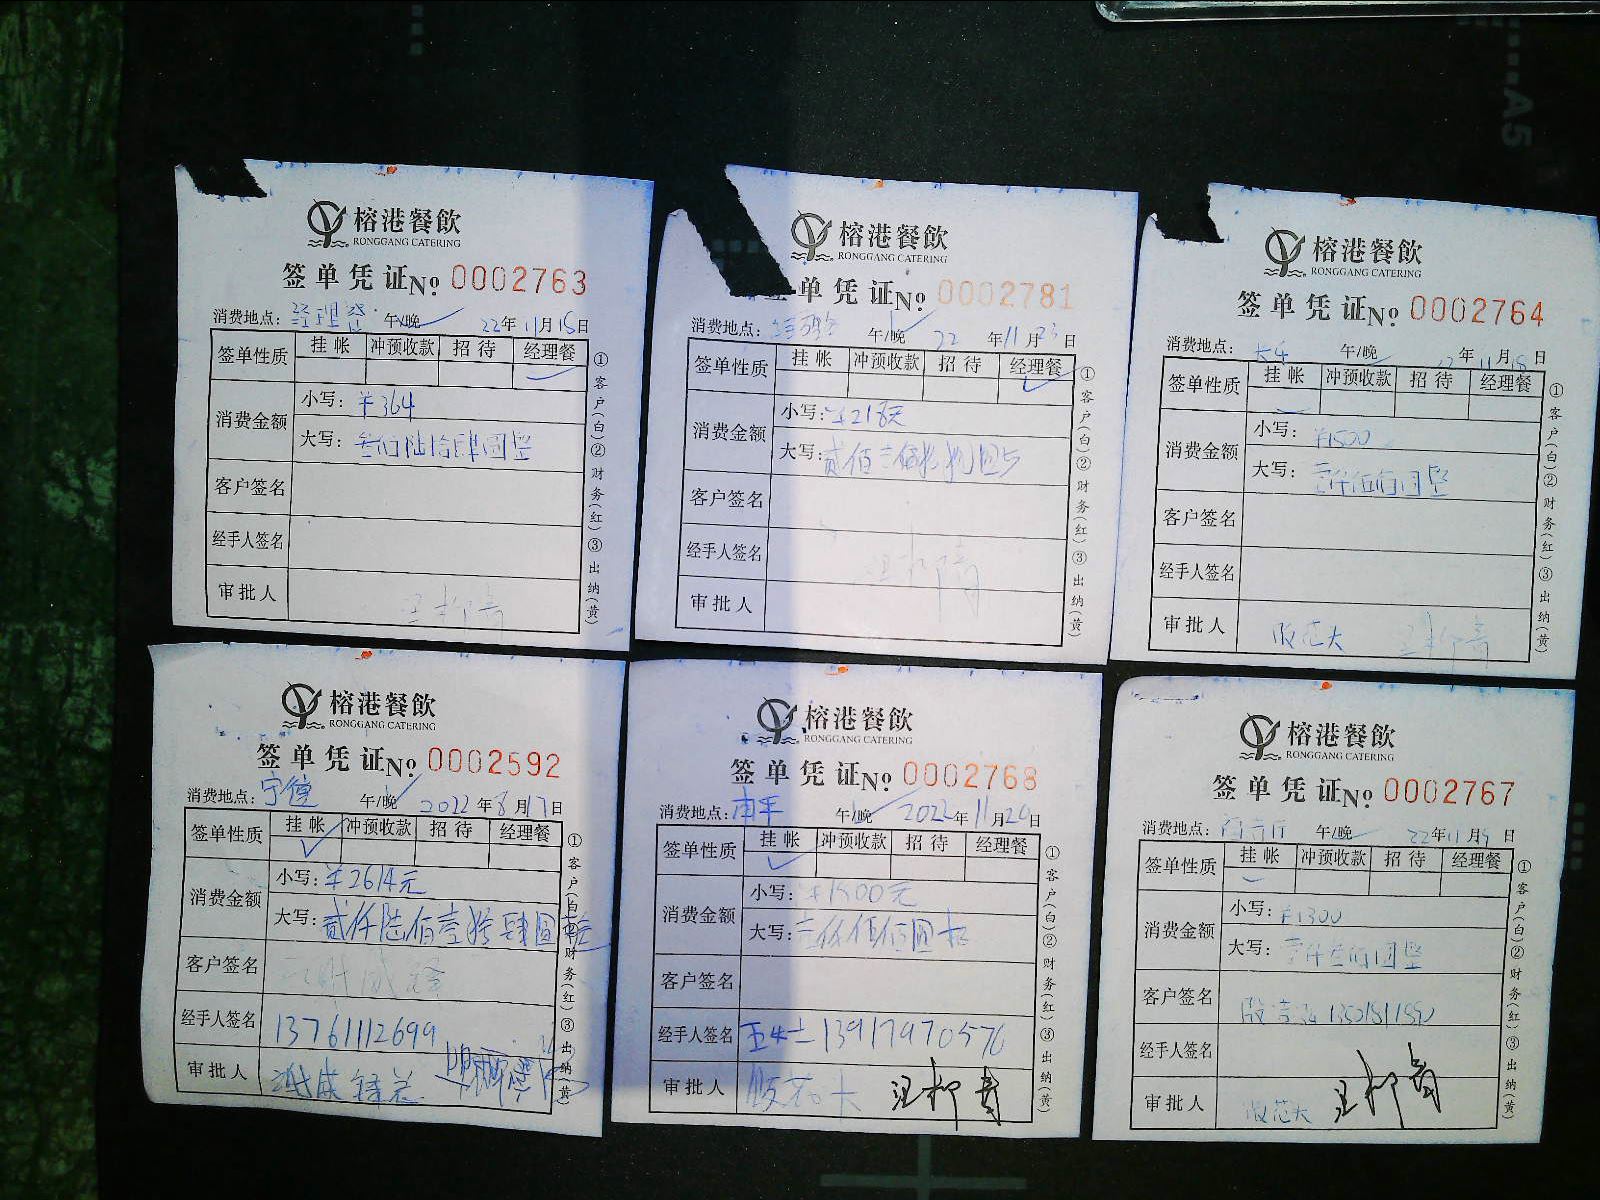 榕港餐飲
RONGGANG CATERING
签单凭证№ 0002763
消费地点：经理餐 午/晚 22年11月15日
签单性质 挂帐 冲预收款 招待 经理餐
消费金额 小写：¥364
大写：叁佰陆拾肆圆整
客户签名
经手人签名
审批人
①客户(白)②财务(红)③出纳(黄)
榕港餐飲
RONGGANG CATERING
单凭证№ 0002781
消费地点： 午/晚 22年11月23日
签单性质 挂帐 冲预收款 招待 经理餐
消费金额 小写：¥218元
大写：贰佰
客户签名
经手人签名
审批人
①客户(白)②财务(红)③出纳(黄)
榕港餐飲
RONGGANG CATERING
签单凭证№ 0002764
消费地点： 午/晚 年11月18日
签单性质 挂帐 冲预收款 招待 经理餐
消费金额 小写：¥1500
大写：壹仟伍佰圆整
客户签名
经手人签名
审批人
①客户(白)②财务(红)③出纳(黄)
榕港餐飲
RONGGANG CATERING
签单凭证№ 0002592
消费地点：宁德 午/晚 2022年8月17日
签单性质 挂帐 冲预收款 招待 经理餐
消费金额 小写：¥2614元
大写：贰仟陆佰壹拾肆圆
客户签名
经手人签名 13761112699
审批人
①客户(白)②财务(红)③出纳(黄)
榕港餐飲
RONGGANG CATERING
签单凭证№ 0002768
消费地点：南平 午/晚 2022年11月20日
签单性质 挂帐 冲预收款 招待 经理餐
消费金额 小写：¥1500元
大写：壹仟伍佰圆
客户签名
经手人签名 王女士 13917970576
审批人 汪柳青
①客户(白)②财务(红)③出纳(黄)
榕港餐飲
RONGGANG CATERING
签单凭证№ 0002767
消费地点： 午/晚 22年11月9日
签单性质 挂帐 冲预收款 招待 经理餐
消费金额 小写：¥1300
大写：壹仟叁佰圆整
客户签名
经手人签名
审批人 汪柳青
①客户(白)②财务(红)③出纳(黄)
A5